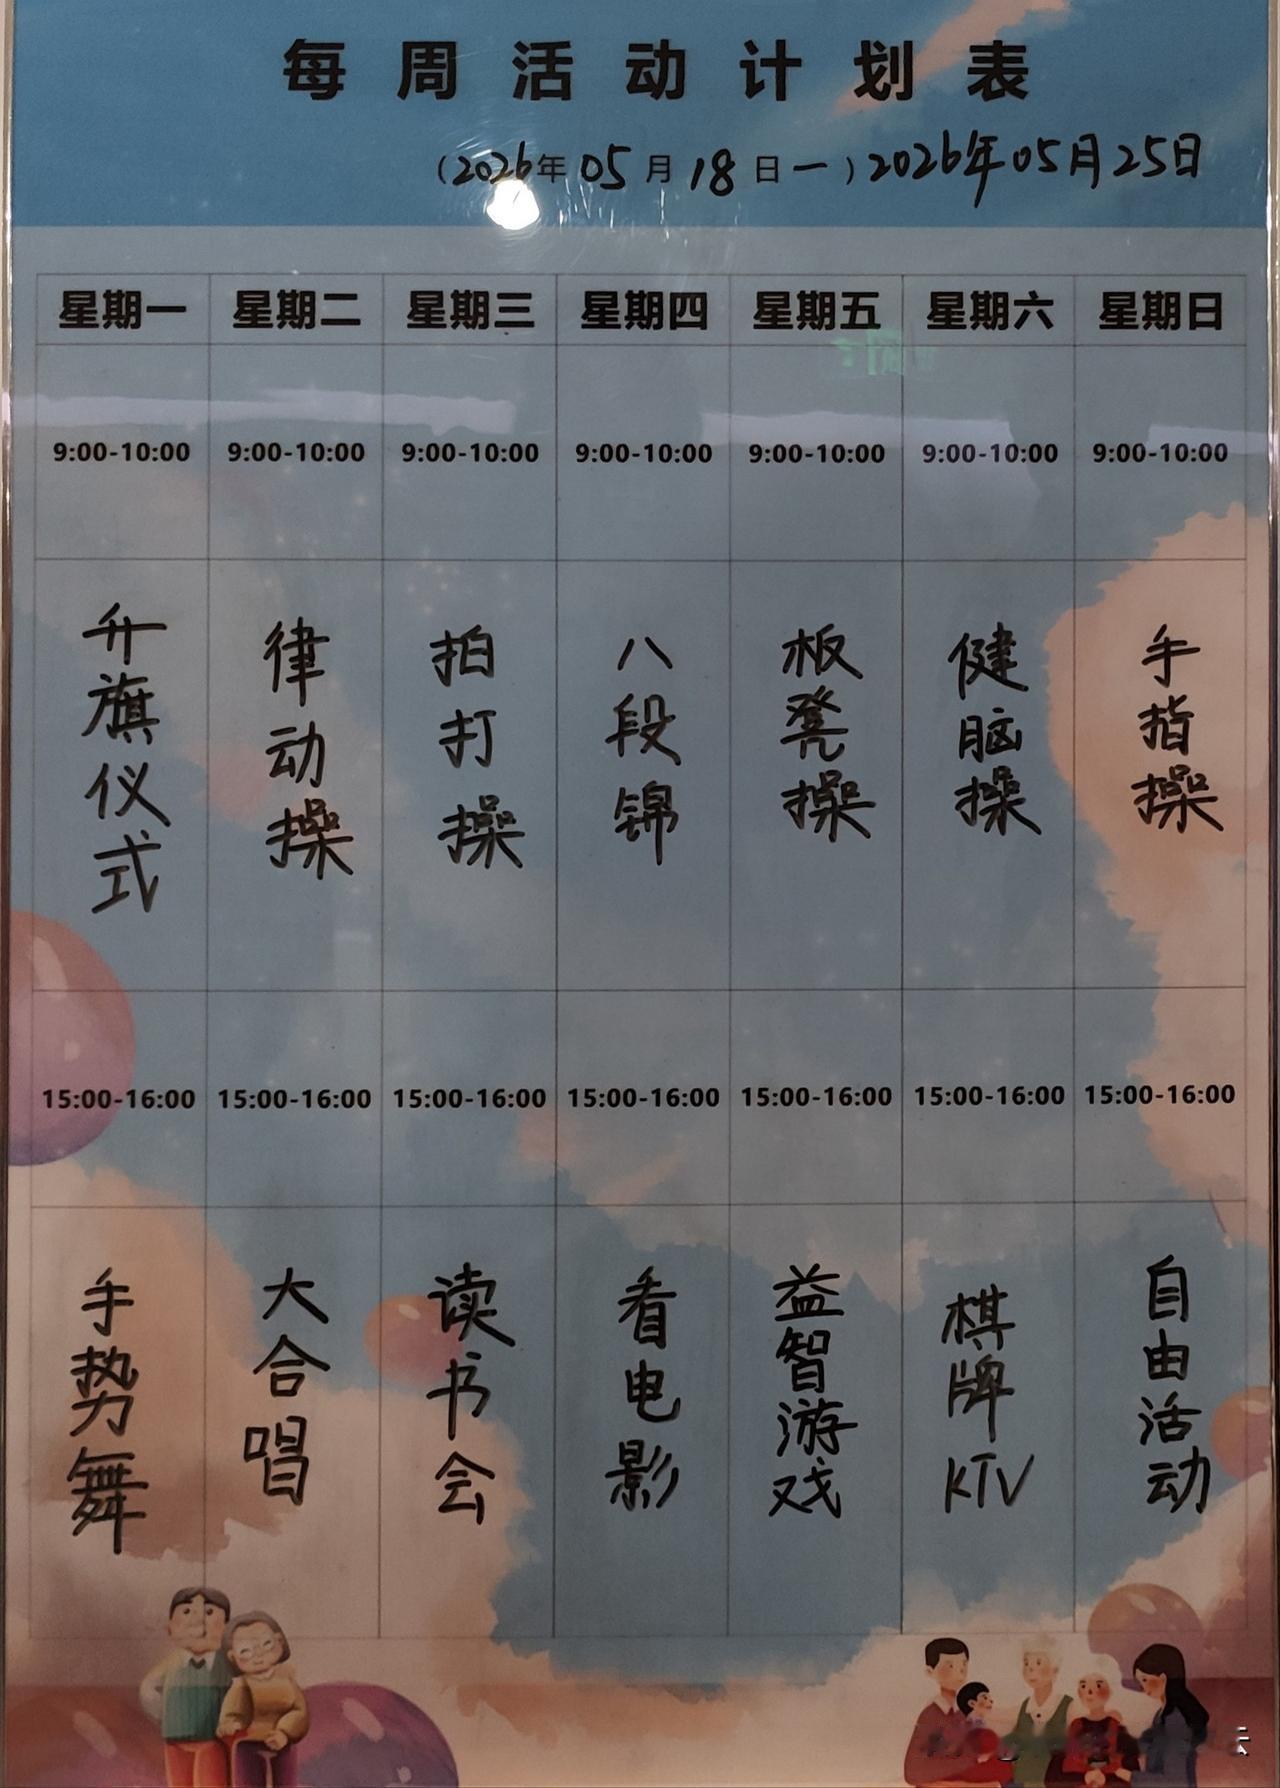 每周活动计划表
(2026年05月18日一)2026年05月25日
星期一 星期二 星期三 星期四 星期五 星期六 星期日
9:00-10:00 9:00-10:00 9:00-10:00 9:00-10:00 9:00-10:00 9:00-10:00 9:00-10:00
升旗仪式 律动操 拍打操 八段锦 板凳操 健脑操 手指操
15:00-16:00 15:00-16:00 15:00-16:00 15:00-16:00 15:00-16:00 15:00-16:00 15:00-16:00
手势舞 大合唱 读书会 看电影 益智游戏 棋牌KTV 自由活动